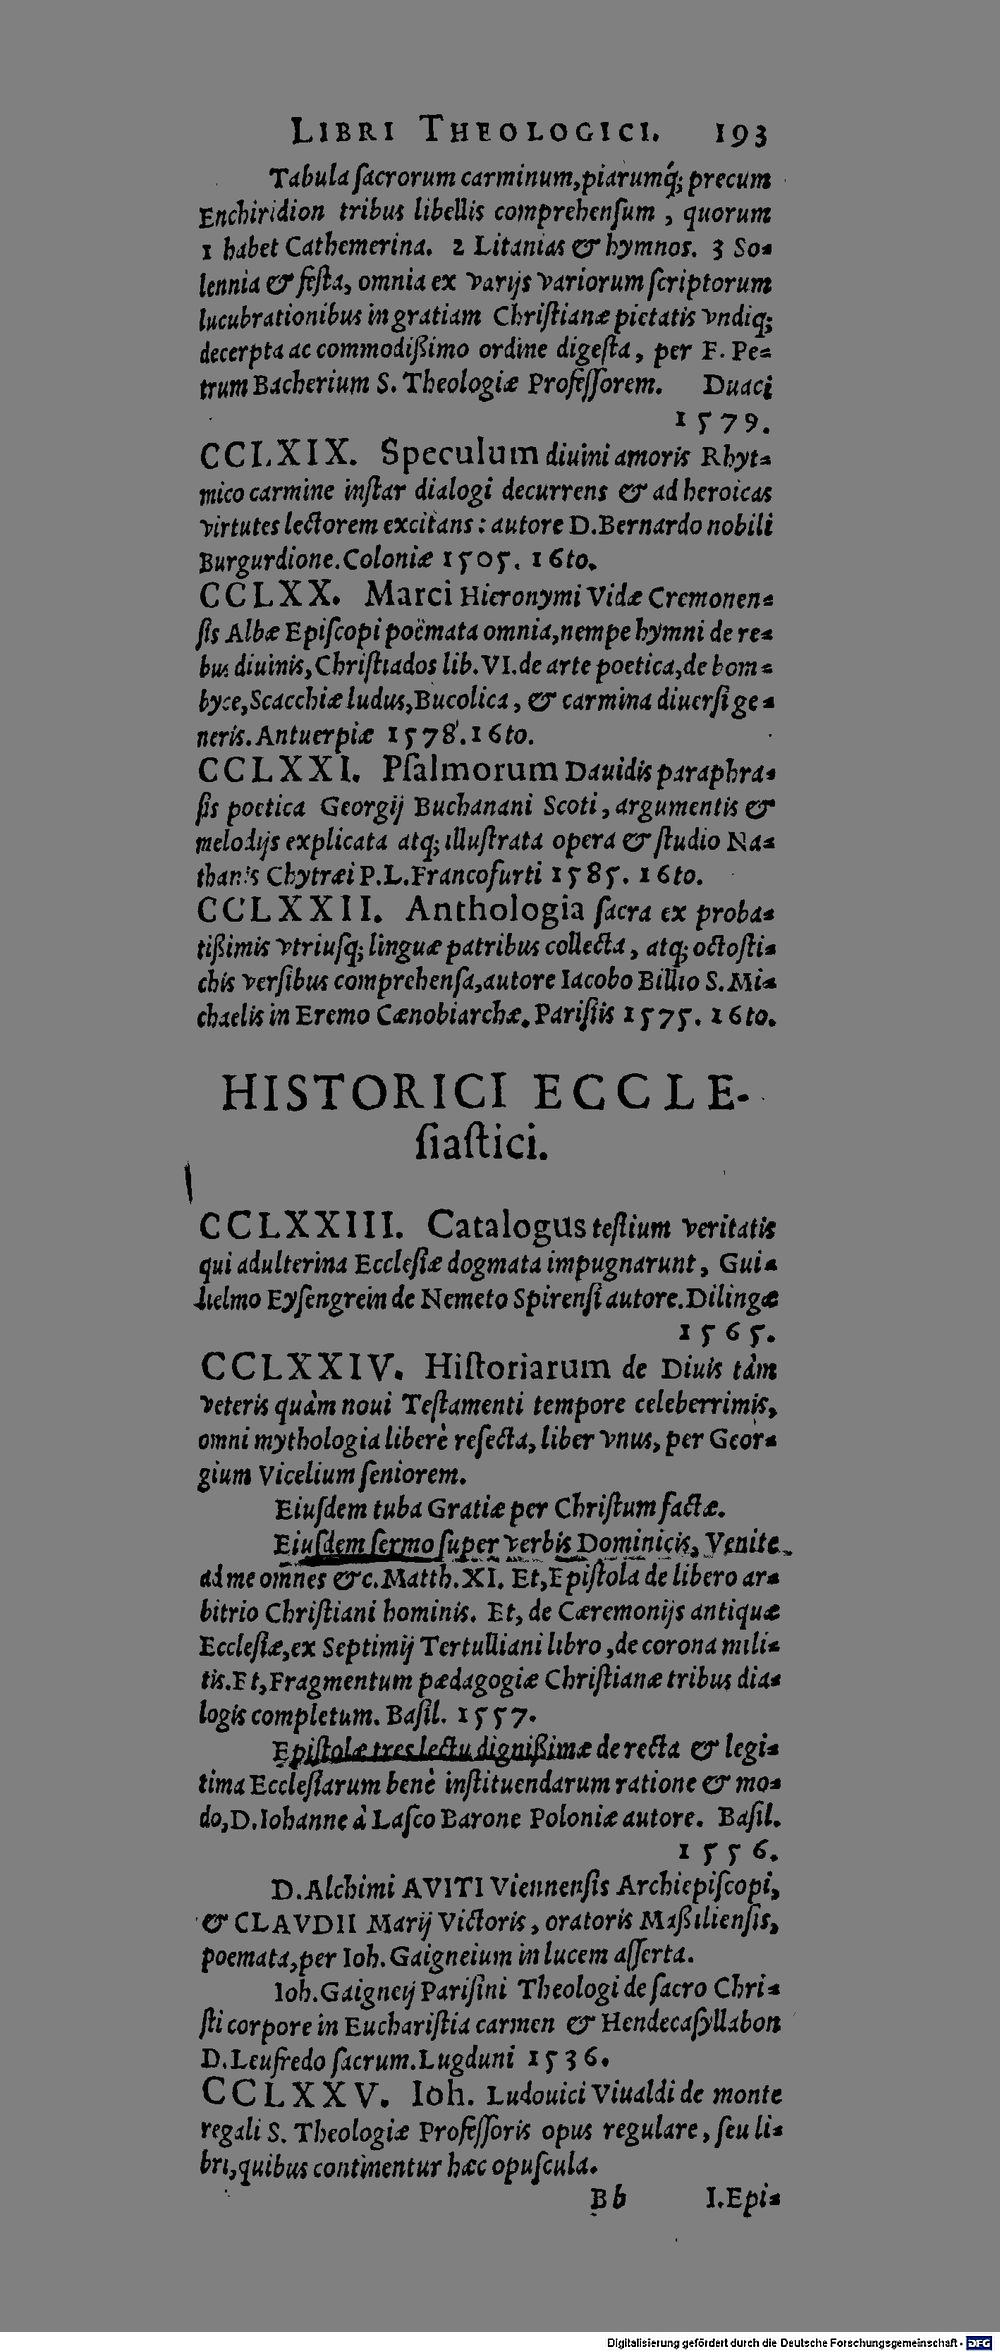 LIBRI THEOLOGICI. 193
Tabula ſacrorum carminum,piarumq́; precum
Enchiridion tribus libellis comprehenſum , quorum
1 habet Cathemerina. 2 Litanias & hymnos. 3 So-
lennia & feſta, omnia ex varijs variorum ſcriptorum
lucubrationibus in gratiam Chriſtianæ pietatis vndiq;
decerpta ac commodißimo ordine digeſta, per F. Pe-
trum Bacherium S. Theologiæ Profeſſorem. Duaci
1579.
CCLXIX. Speculum diuini amoris Rhyt-
mico carmine inſtar dialogi decurrens & ad heroicas
virtutes lectorem excitans : autore D.Bernardo nobili
Burgurdione.Coloniæ 1505. 16to.
CCLXX. Marci Hieronymi Vidæ Cremonen-
ſis Albæ Epiſcopi poëmata omnia,nempe hymni de re-
bus diuinis, Chriſtiados lib.VI.de arte poetica,de bom-
byce,Scacchiæ ludus,Bucolica, & carmina diuerſi ge-
neris.Antuerpiæ 1578.16to.
CCLXXI. Pſalmorum Dauidis paraphra-
ſis poetica Georgij Buchanani Scoti, argumentis &
melodijs explicata atq; illuſtrata opera & ſtudio Na-
thanis Chytræi P.L.Francofurti 1585. 16to.
CCLXXII. Anthologia ſacra ex proba-
tißimis vtriuſq; linguæ patribus collecta, atq; octoſti-
chis verſibus comprehenſa,autore Iacobo Billio S.Mi-
chaelis in Eremo Cœnobiarchæ. Pariſiis 1575. 16to.
HISTORICI ECCLE-
ſiaſtici.
CCLXXIII. Catalogus teſtium veritatis
qui adulterina Eccleſiæ dogmata impugnarunt, Gui-
lielmo Eyſengrein de Nemeto Spirenſi autore.Dilingæ
1565.
CCLXXIV. Hiſtoriarum de Diuis tàm
veteris quàm noui Teſtamenti tempore celeberrimis,
omni mythologia liberè reſecta, liber vnus, per Geor-
gium Vicelium ſeniorem.
Eiuſdem tuba Gratiæ per Chriſtum factæ.
Eiuſdem ſermo ſuper verbis Dominicis, Venite
ad me omnes &c.Matth.XI. Et,Epiſtola de libero ar-
bitrio Chriſtiani hominis. Et, de Cæremonijs antiquæ
Eccleſiæ,ex Septimij Tertulliani libro ,de corona mili-
tis.Et,Fragmentum pædagogiæ Chriſtianæ tribus dia-
logis completum. Baſil. 1557.
Epiſtolæ tres lectu dignißimæ de recta & legi-
tima Eccleſiarum benè inſtituendarum ratione & mo-
do,D.Iohanne à Laſco Barone Poloniæ autore. Baſil.
1556.
D.Alchimi AVITI Viennenſis Archiepiſcopi,
& CLAVDII Marij Victoris, oratoris Maßilienſis,
poemata,per Ioh. Gaigneium in lucem aſſerta.
Ioh.Gaigneij Pariſini Theologi de ſacro Chri-
ſti corpore in Euchariſtia carmen & Hendecaſyllabon
D.Leufredo ſacrum.Lugduni 1536.
CCLXXV. Ioh. Ludouici Viualdi de monte
regali S. Theologiæ Profeſſoris opus regulare, ſeu li-
bri,quibus continentur hæc opuſcula.
Bb I.Epi-
Digitalisierung gefördert durch die Deutsche Forschungsgemeinschaft - DFG